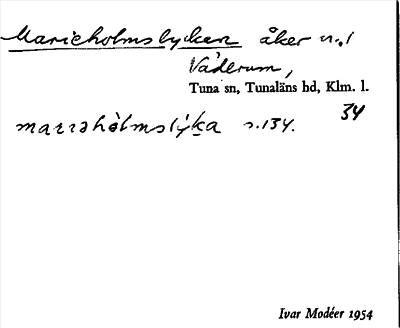 Marieholmslyckan åker n.1
Väderum,
Tuna sn, Tunaläns hd, Klm. l.
34
marıəhòlmslýka s.134.
Ivar Modéer 1954